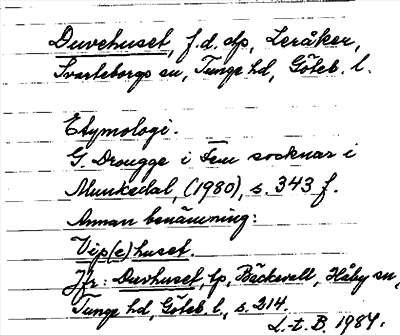 Duvehuset, f.d. slp, Leråker,
Svarteborgs sn, Tunge hd, Göteb. l.
Etymologi.
G. Drougge i Fem socknar i
Munkedal, (1980), s. 343 f.
Annan benämning:
Vip(e)huset.
Jfr: Duvhuset, lp, Bäckevall, Håby sn,
Tunge hd, Göteb. l., s. 214.
L.-t. B 1984.